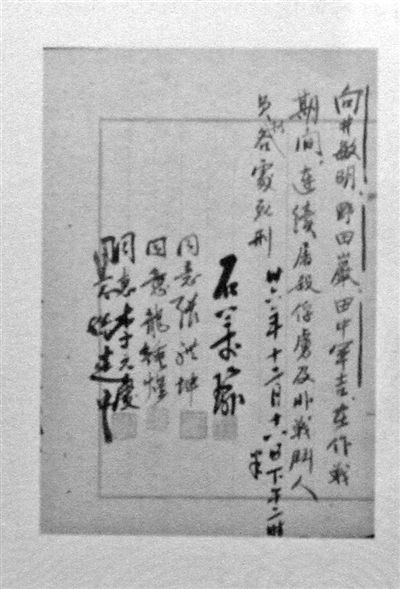 向井敏明、野田巖、田中軍吉、在作戰
期间、連續屠殺俘虜及非戰鬪人
員、各處死刑
卅六年十二月十六日下午二時
半
石美瑜
同意張體坤
同意龍鍾煌
同意李元慶
同意